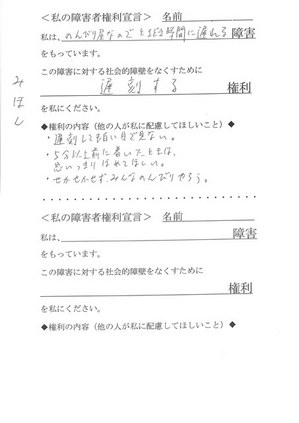 ＜私の障害者権利宣言＞　名前
私は、のんびり屋なのでときどき時間に遅れる 障害
をもっています。
この障害に対する社会的障壁をなくすために
遅刻する 権利
を私にください。
◆権利の内容（他の人が私に配慮してほしいこと）◆
・遅刻しても白い目で見ない。
・5分以上前に着いたときは、
思いっきりほめてほしい。
・せかせかせず、みんなのんびりやろう。
みほん
＜私の障害者権利宣言＞　名前
私は、 障害
をもっています。
この障害に対する社会的障壁をなくすために
権利
を私にください。
◆権利の内容（他の人が私に配慮してほしいこと）◆